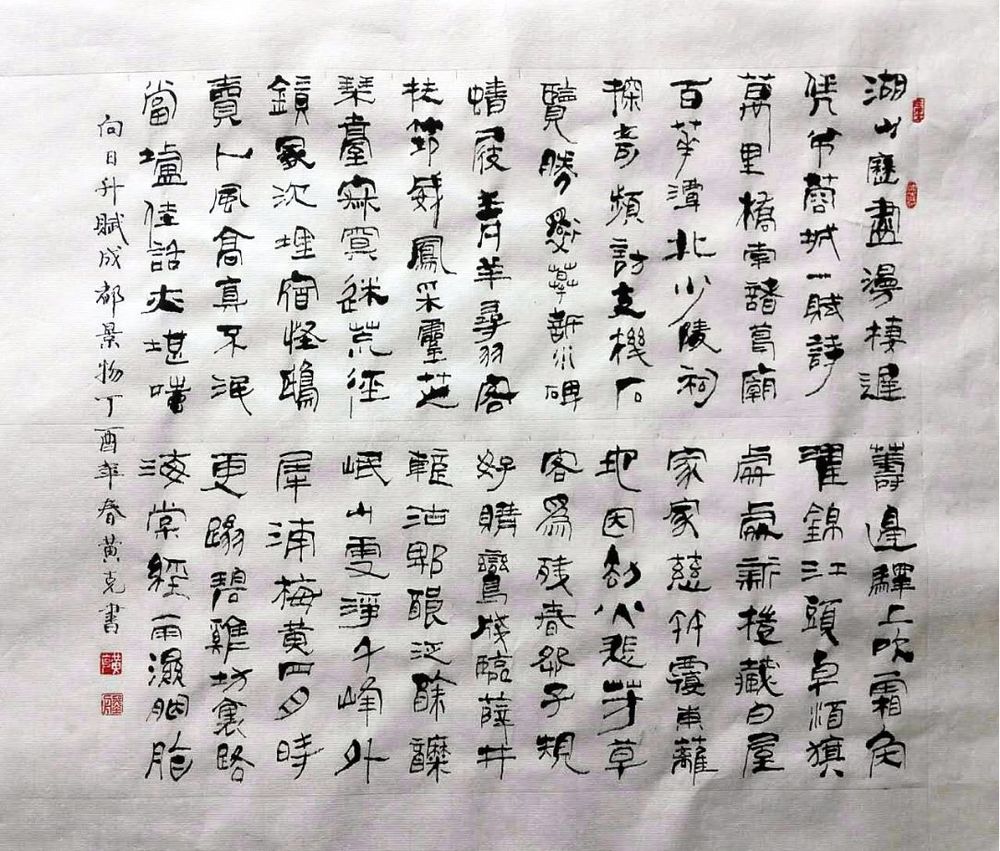 湖山歷盡漫棲遲
凭弔蓉城一賦詩
萬里橋南諸葛廟
百華潭北少陵祠
探奇頻訪支機石
覽勝摹水碑
蠟屐青羊尋羽客
扶筇威鳳采靈芝
琴臺寂寞迷荒徑
鏡冢沉埋宿怪鴟
賣卜風高真不泯
當壚佳話尤堪嗤
籌邊驛上吹霜角
濯錦江頭卓酒旗
處處新樓藏白屋
家家慈竹覆東籬
地因劫火悲芳草
客爲殘春怨子規
好購鸞牋臨薛井
輕沽郫釀泛酴醾
岷山雪淨千峰外
犀浦梅黃四月時
更蹋碧雞坊裏路
海棠經雨濕胭脂
向日升賦成都景物丁酉年春黃克書